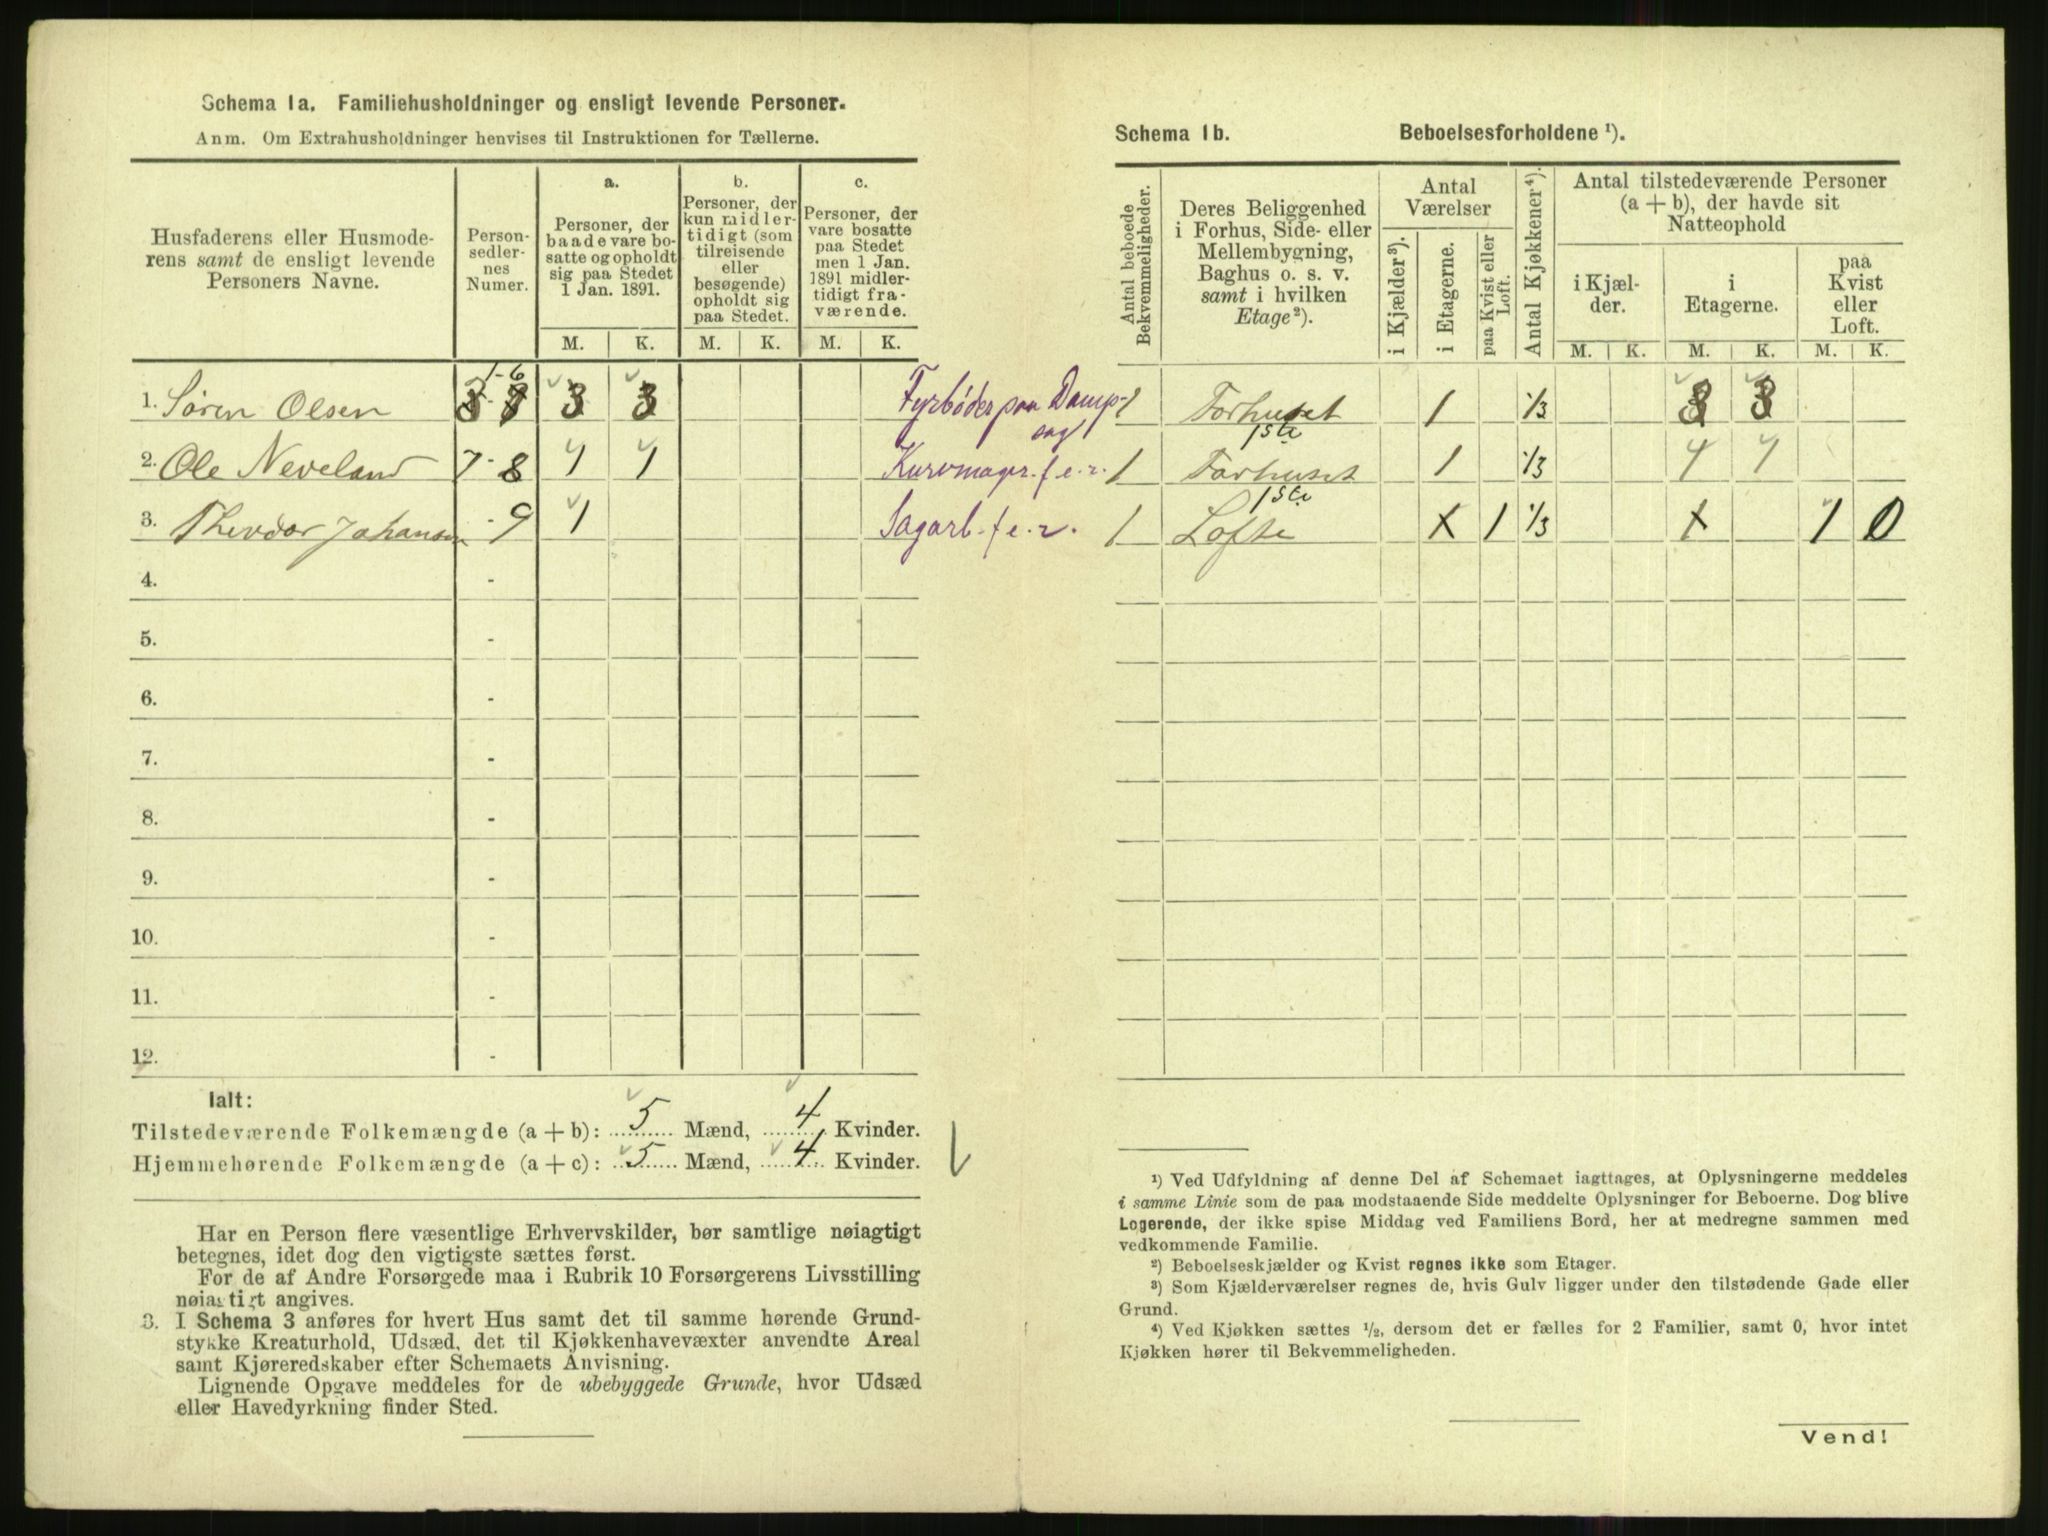 Schema 1a. Familiehusholdninger og ensligt levende Personer.
Anm. Om Extrahusholdninger henvises til Instruktionen for Tællerne.
Husfaderens eller Husmoderens samt de ensligt levende Personers Navne.
Personsedlernes Numer.
a. Personer, der baade vare bosatte og opholdt sig paa Stedet 1 Jan. 1891.
b. Personer, der kun midlertidigt (som tilreisende eller besøgende) opholdt sig paa Stedet.
c. Personer, der vare bosatte paa Stedet men 1 Jan. 1891 midlertidigt fraværende.
M. K. M. K. M. K.
1. Søren Olsen 1-6 3 3 Fyrbøder paa Dampsag
2. Ole Neveland 7-8 1 1 Kurvmager. f.e.r.
3. Theodor Johansen - 9 1 Sagarb. f.e.r.
4. -
5. -
6. -
7. -
8. -
9. -
10. -
11. -
12. -
Ialt:
Tilstedeværende Folkemængde (a + b): 5 Mænd, 4 Kvinder.
Hjemmehørende Folkemængde (a + c): 5 Mænd, 4 Kvinder.
Har en Person flere væsentlige Erhvervskilder, bør samtlige nøiagtigt
betegnes, idet dog den vigtigste sættes først.
For de af Andre Forsørgede maa i Rubrik 10 Forsørgerens Livsstilling
nøiagtigt angives.
3. I Schema 3 anføres for hvert Hus samt det til samme hørende Grund-
stykke Kreaturhold, Udsæd, det til Kjøkkenhavevæxter anvendte Areal
samt Kjøreredskaber efter Schemaets Anvisning.
Lignende Opgave meddeles for de ubebyggede Grunde, hvor Udsæd
eller Havedyrkning finder Sted.
Schema 1b. Beboelsesforholdene ¹).
Antal beboede Bekvemmeligheder.
Deres Beliggenhed i Forhus, Side- eller Mellembygning, Baghus o. s. v. samt i hvilken Etage ²).
Antal Værelser
i Kjælder ³).
i Etagerne.
paa Kvist eller Loft.
Antal Kjøkkener ⁴).
Antal tilstedeværende Personer (a + b), der havde sit Natteophold
i Kjælder.
i Etagerne.
paa Kvist eller Loft.
M. K. M. K. M. K.
1 Forhuset 1ste 1 1/3 3 3
1 Forhuset 1ste 1 1/3 1 1
1 Lofte 1 1/3 1 0
¹) Ved Udfyldning af denne Del af Schemaet iagttages, at Oplysningerne meddeles
i samme Linie som de paa modstaaende Side meddelte Oplysninger for Beboerne. Dog blive
Logerende, der ikke spise Middag ved Familiens Bord, her at medregne sammen med
vedkommende Familie.
²) Beboelseskjælder og Kvist regnes ikke som Etager.
³) Som Kjælderværelser regnes de, hvis Gulv ligger under den tilstødende Gade eller
Grund.
⁴) Ved Kjøkken sættes 1/2, dersom det er fælles for 2 Familier, samt 0, hvor intet
Kjøkken hører til Bekvemmeligheden.
Vend!